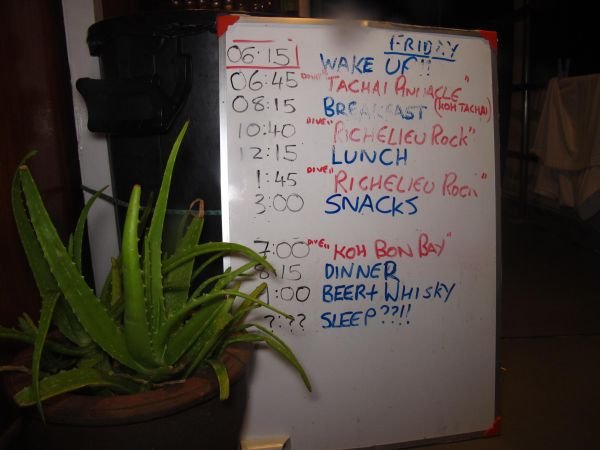 FRIDAY
06:15 WAKE UP!!
06:45 DIVE "TACHAI PINNACLE"
08:15 BREAKFAST (KOH TACHAI)
10:40 DIVE "RICHELIEU ROCK"
12:15 LUNCH
1:45 DIVE "RICHELIEU ROCK"
3:00 SNACKS
7:00 DIVE "KOH BON BAY"
8:15 DINNER
:00 BEER + WHISKY
?:?? SLEEP??!!